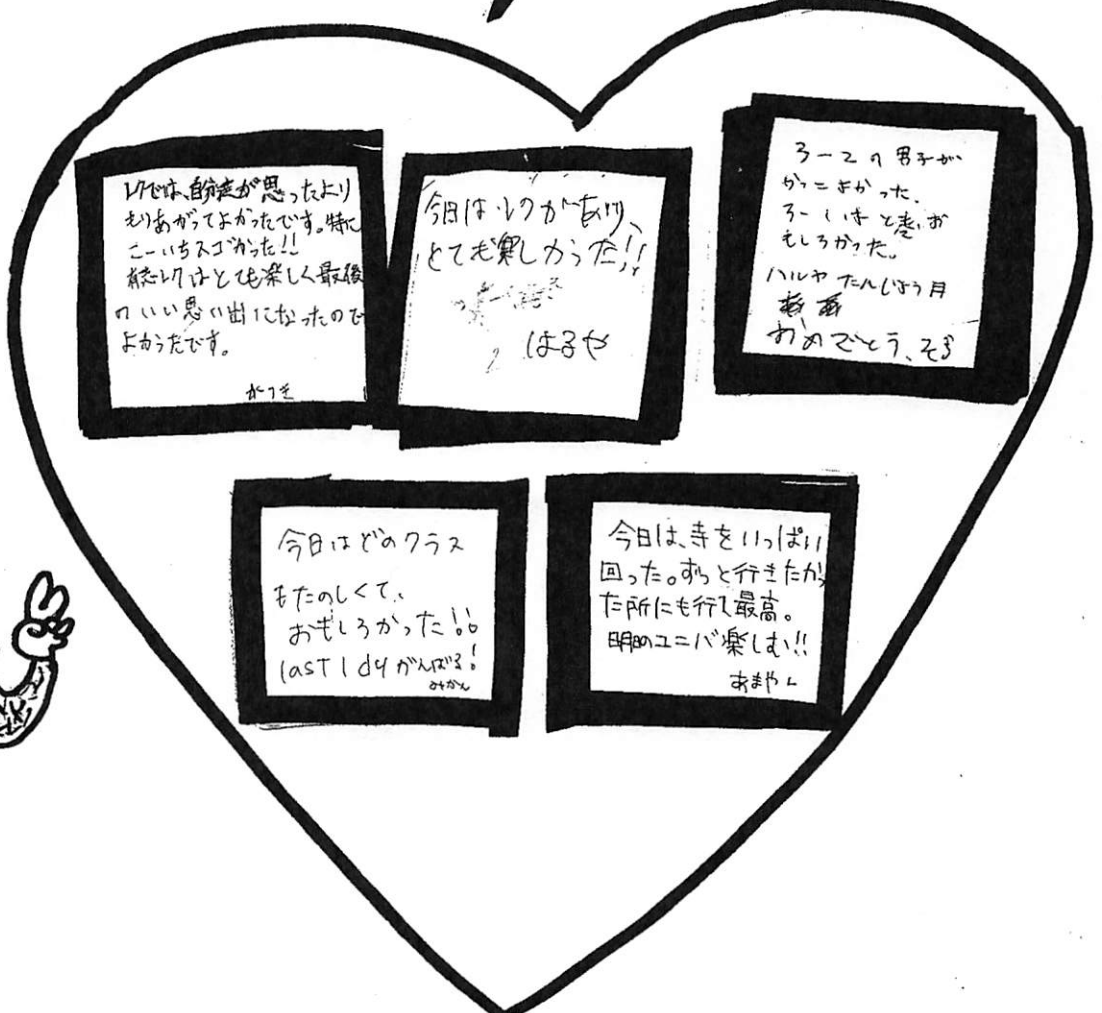 レクでは、自分達が思ったより
もりあがってよかったです。特に
こーいちスゴかった!!
レクはとても楽しく最後
のいい思い出になったので
よかったです。
かつき
今日はレクがあり、
とても楽しかった!!
はるや
3-2の男子が
かっこよかった、
3-1は お
もしろかった。
ハルヤ たんじょう月
おめでとう、そら
今日はどのクラス
もたのしくて、
おもしろかった!!
last 1 dyがんばる!
みかん
今日は、寺をいっぱい
回った。ずっと行きたかっ
た所にも行て最高。
明日のユニバ楽しむ!!
あまやん